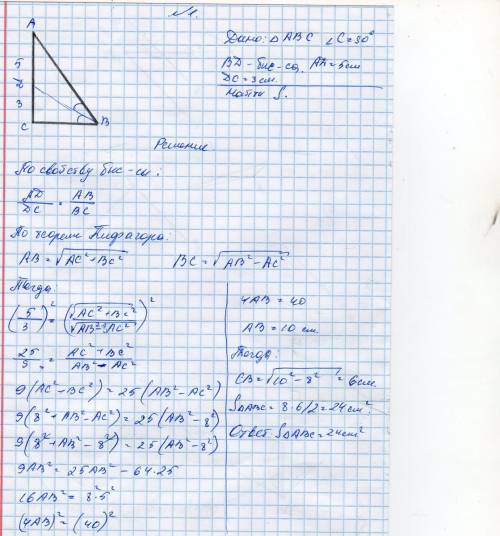 №1.
A
5
D
3
C
B
Дано: △ABC ∠C=90°
BD-бис-са, AD=5см
DC=3см.
Найти S.
Решение
По свойству бис-сы:
AD/DC = AB/BC
По теореме Пифагора:
AB=√(AC²+BC²) BC=√(AB²-AC²)
Тогда:
(5/3)² = (√(AC²+BC²)/√(AB²-AC²))²
25/9 = (AC²+BC²)/(AB²-AC²)
9(AC²-BC²)=25(AB²-AC²)
9(8²+AB²-AC²)=25(AB²-8²)
9(8²+AB²-8²)=25(AB²-8²)
9AB²=25AB²-64·25
16AB²=8²·5²
(4AB)²=(40)²
4AB=40
AB=10 см.
Тогда
CB=√(10²-8²)=6см.
S△ABC=8·6/2=24см².
Ответ: S△ABC=24см²